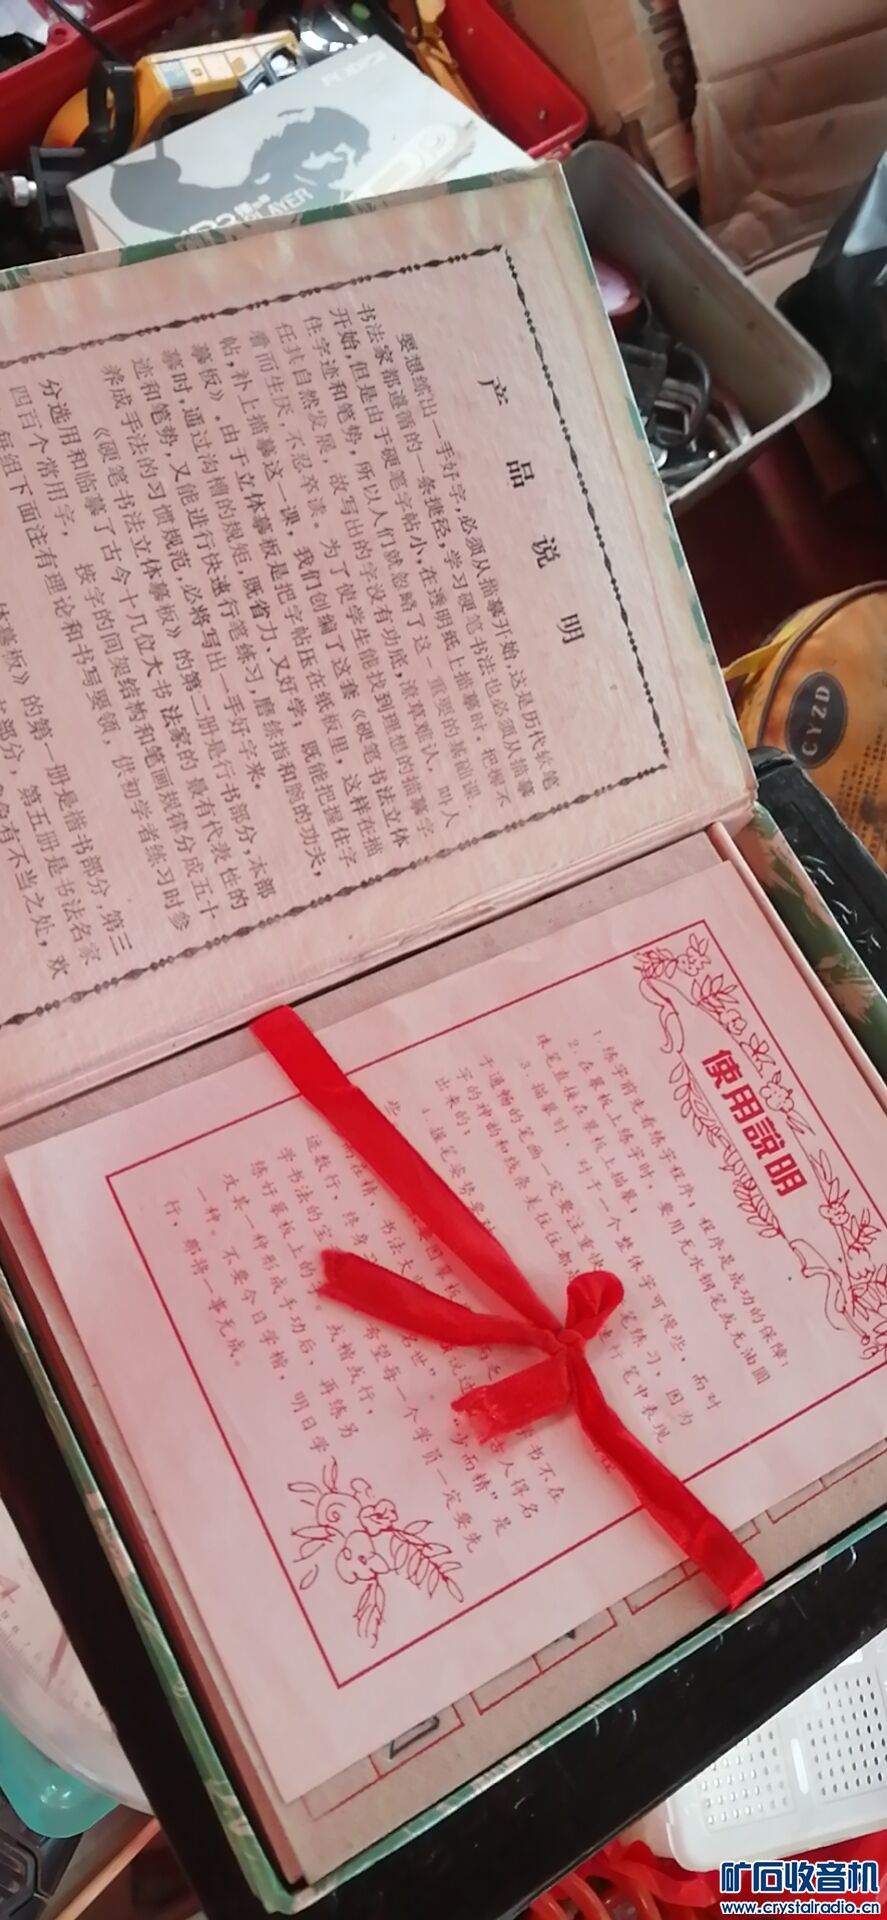 PLAYER
产品说明
要想练出一手好字,必须从描摹开始,这是历代软笔
书法家都遵循的一条捷径,学习硬笔书法也必须从描摹
开始,但是由于硬笔字帖小,在透明纸上描摹时,把握不
住字迹和笔势,所以人们就忽略了这一重要的基础课.
任其自然发展,故写出的字没有功底,潦草难认,叫人
看而生厌,不忍卒读。为了使学生能找到理想的描摹字
帖,补上描摹这一课,我们创编了这套《硬笔书法立体
摹板》.由于立体摹板是把字帖压在纸板里,这样在描
摹时,通过沟槽的规矩,既省力、又好学;既能把握住字
迹和笔势,又能进行快速行笔练习,磨练指和腕的功夫,
养成手法的习惯规范,必将写出一手好字来.
《硬笔书法立体摹板》的第二册是行书部分,本部
分选用和临摹了古今十几位大书法家的最有代表性的
四百个常用字,按字的间架结构和笔画规律分成五十
每组下面注有理论和书写要领,供初学者练习时参
体摹板》的第一册是楷书部分,第三
部分,第五册是书法名家
有不当之处,欢
使用説明
1.练字前先看练字程序;程序是成功的保障;
2.在摹板上练字时,要用无水钢笔或无油圆
珠笔直接在摹板上描摹;
3.描摹时,对于一个整体字可慢些,而对
于通畅的笔画一定要注重快
笔练习,因为
字的神韵和线条美往往都是
行笔中表现
出来的;
4.握笔姿势要
些
书不在
而在精,书法大师
名世"。
古人得名
这数行,终身
说过"少而精"是
学书法的宝
希望每一个学员一定要先
练好摹板上的
或楷或行,
攻其一种形成手功后,再练另
一种。不要今日学楷,明日学
行,那将一事无成。
CYZD
矿石收音机
www.crystalradio.cn